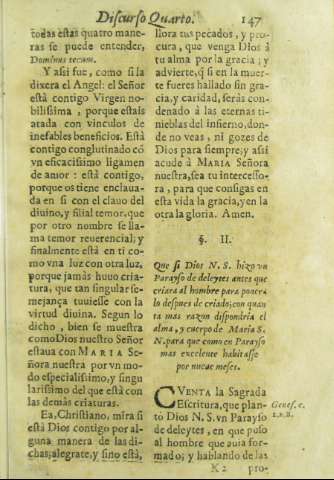 Discurso Quarto. 147
todas estas quatro mane-
ras se puede entender,
Dominus tecum.
Y asi fue, como si la
dixera el Angel: el Señor
está contigo Virgen nobilissima, porque estais
atada con vinculos de
inefables beneficios. Està
contigo conglutinado cõ
vn eficacissimo ligamen
de amor: està contigo,
porque os tiene enclaua-
da en si con el clauo del
diuino, y filial temor, que
por otro nombre se lla-
ma temor reuerencial; y
finalmente està en ti co-
mo vna luz con otra luz,
porque jamás huuo cria-
tura, que tan singular se-
mejança tuuiesse con la
virtud diuina. Segun lo
dicho, bien se muestra
como Dios nuestro Señor
estaua con MARIA Se-
ñora nuestra por vn mo-
do especialissimo, y singu-
larissimo del que està con
las demàs criaturas.
Ea, Christiano, mira si
està Dios contigo por al-
guna manera de las di-
chas; alegrate, y sino està,
llora tus pecados, y pro-
cura, que venga Dios à
tu alma por la gracia; y
advierte, q̃ si en la muer-
te fueres hallado sin gra-
cia, y caridad, seràs con-
denado à las eternas ti-
nieblas del infierno, don-
de no veas, ni gozes de
Dios para siempre; y assi
acude à MARIA Señora
nuestra, sea tu intercesso-
ra, para que consigas en
esta vida la gracia, y en la
otra la gloria. Amen.
§. II.
Que si Dios N. S. hizo vn
Parayso de deleytes antes que
criara al hombre para ponerà
lo despues de criado; con quan
ta mas razon dispondria el
alma, y cuerpo de Maria S.
N. para que como en Parayso
mas excelente habitasse
por nueue meses.
CVENTA la Sagrada
Escritura, que plan-
tò Dios N. S. vn Parayso
de deleytes, en que puso
al hombre que auia for-
mado; y hablando de las
Genes. c.
2. v. 8.
K 2 pro-